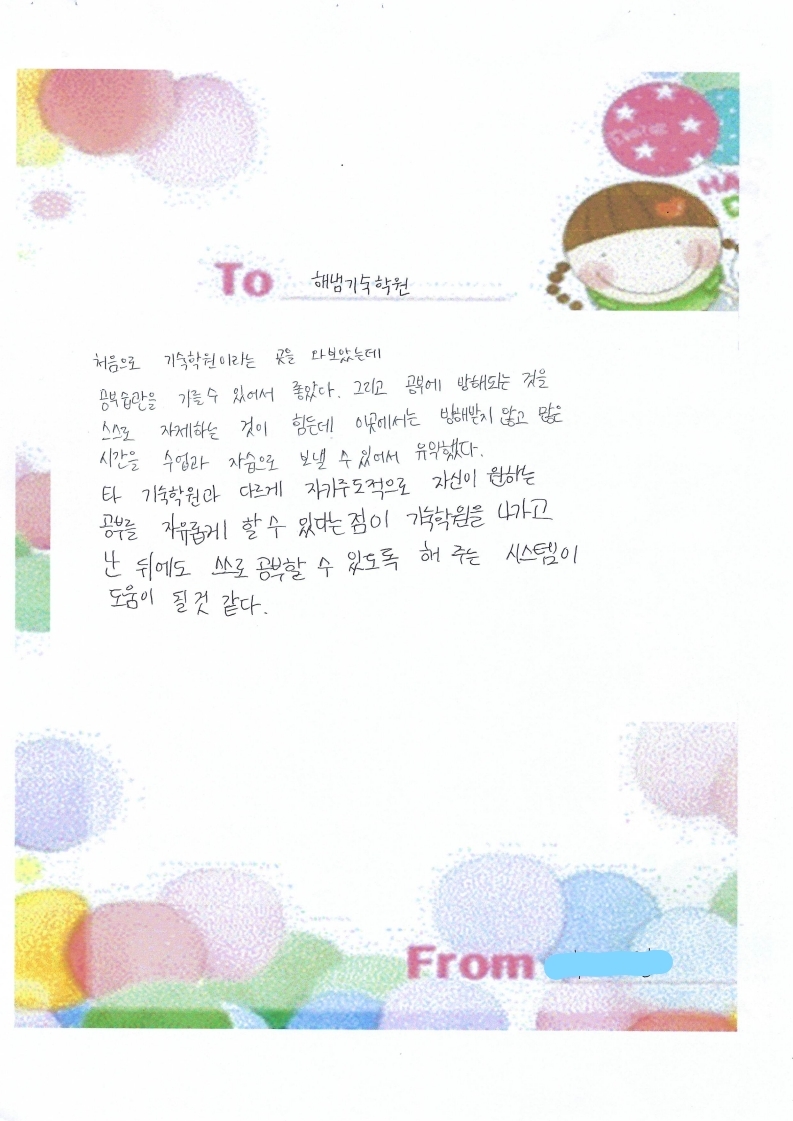 To 해냄기숙학원
처음으로 기숙학원이라는 곳을 와보았는데
공부습관을 기를 수 있어서 좋았다. 그리고 공부에 방해되는 것을
스스로 자제하는 것이 힘든데 이곳에서는 방해받지 않고 많은
시간을 수업과 자습으로 보낼 수 있어서 유익했다.
타 기숙학원과 다르게 자기주도적으로 자신이 원하는
공부를 자유롭게 할 수 있다는 점이 기숙학원을 나가고
난 뒤에도 스스로 공부할 수 있도록 해 주는 시스템이
도움이 될 것 같다.
From